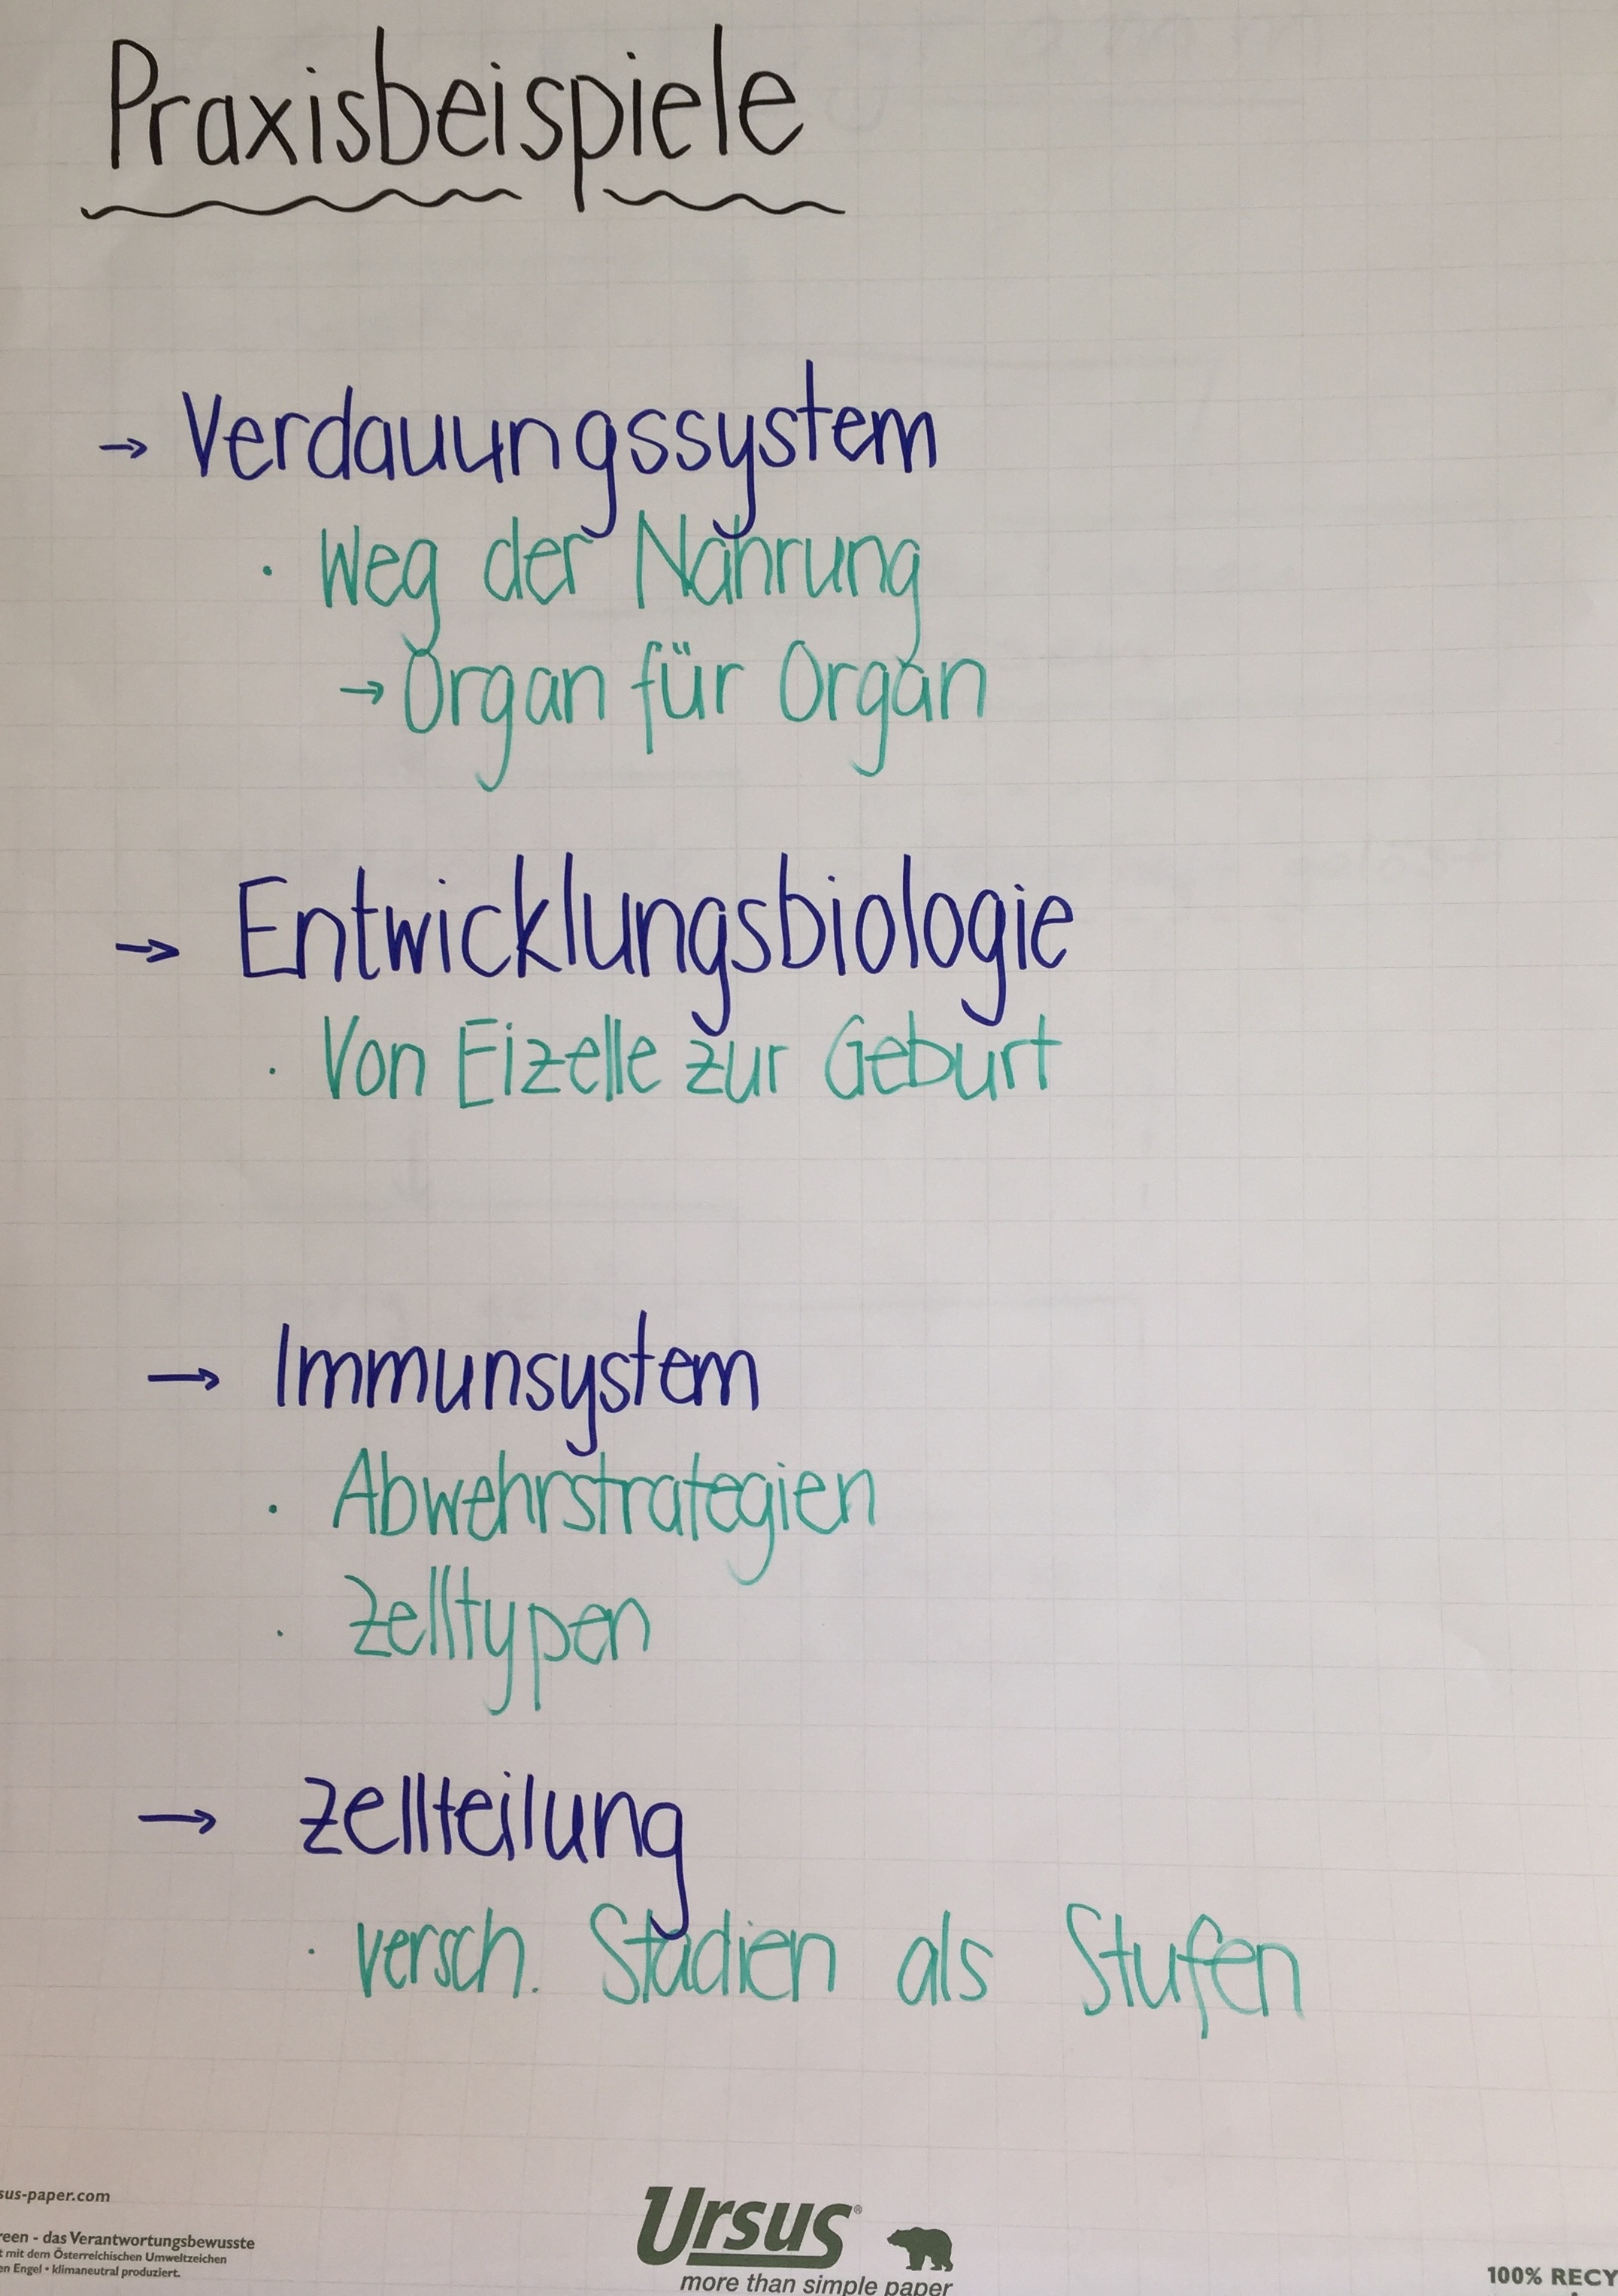 Praxisbeispiele
→ Verdauungssystem
· Weg der Nahrung
→ Organ für Organ
→ Entwicklungsbiologie
· Von Eizelle zur Geburt
→ Immunsystem
· Abwehrstrategien
· Zelltypen
→ Zellteilung
· versch. Stadien als Stufen
sus-paper.com
reen - das Verantwortungsbewusste
t mit dem Österreichischen Umweltzeichen
en Engel • klimaneutral produziert.
Ursus®
more than simple paper
100% RECY